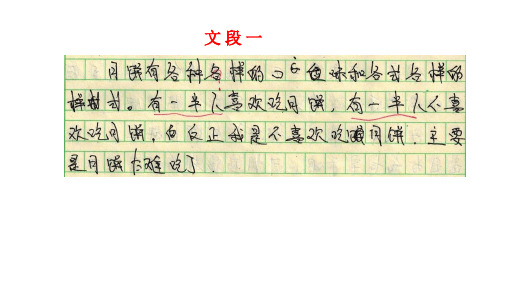 文段一
月饼有各种各样的口色味和各式各样的
样式。有一半人喜欢吃月饼，有一半人不喜
欢吃月饼，而反正我是不喜欢吃月饼．主要
是月饼太难吃了．